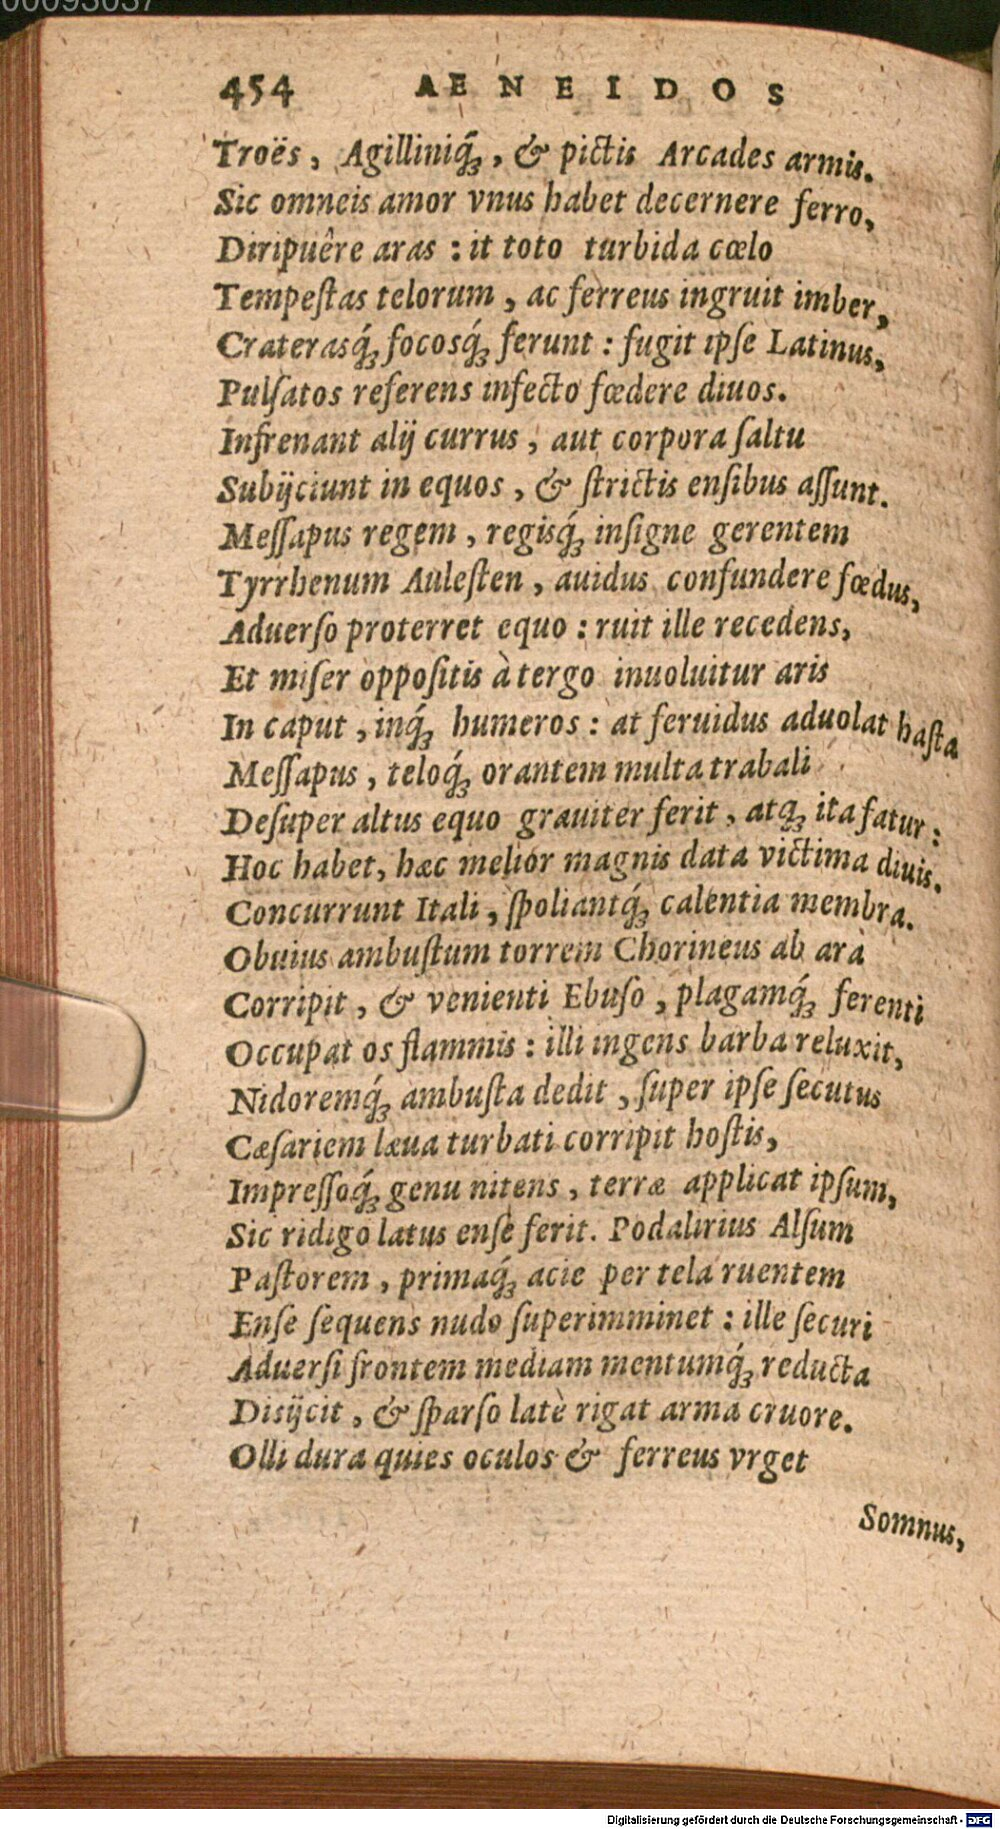 00093037
454 AENEIDOS
Troës, Agilliniq́ꝫ, & pictis Arcades armis.
Sic omneis amor vnus habet decernere ferro,
Diripuêre aras : it toto turbida cœlo
Tempeſtas telorum, ac ferreus ingruit imber,
Craterasq́ꝫ focosq́ꝫ ferunt : fugit ipſe Latinus,
Pulſatos referens infecto fœdere diuos.
Infrenant alij currus, aut corpora ſaltu
Subijciunt in equos, & ſtrictis enſibus aſſunt.
Meſſapus regem, regisq́ꝫ inſigne gerentem
Tyrrhenum Auleſten, auidus confundere fœdus,
Aduerſo proterret equo : ruit ille recedens,
Et miſer oppoſitis à tergo inuoluitur aris
In caput, inq́ꝫ humeros : at feruidus aduolat haſta
Meſſapus, teloq́ꝫ orantem multa trabali
Deſuper altus equo grauiter ferit, atqꝫ ita fatur :
Hoc habet, hæc melior magnis data victima diuis.
Concurrunt Itali, ſpoliantq́ꝫ calentia membra.
Obuius ambuſtum torrem Chorineus ab ara
Corripit, & venienti Ebuſo, plagamq́ꝫ ferenti
Occupat os flammis : illi ingens barba reluxit,
Nidoremq́ꝫ ambuſta dedit, ſuper ipſe ſecutus
Cæſariem læua turbati corripit hoſtis,
Impreſſoq́ꝫ genu nitens, terræ applicat ipſum,
Sic ridigo latus enſe ferit. Podalirius Alſum
Paſtorem, primaq́ꝫ acie per tela ruentem
Enſe ſequens nudo ſuperimminet : ille ſecuri
Aduerſi frontem mediam mentumq́ꝫ reducta
Disijcit, & ſparſo latè rigat arma cruore.
Olli dura quies oculos & ferreus vrget
Somnus,
Digitalisierung gefördert durch die Deutsche Forschungsgemeinschaft - DFG